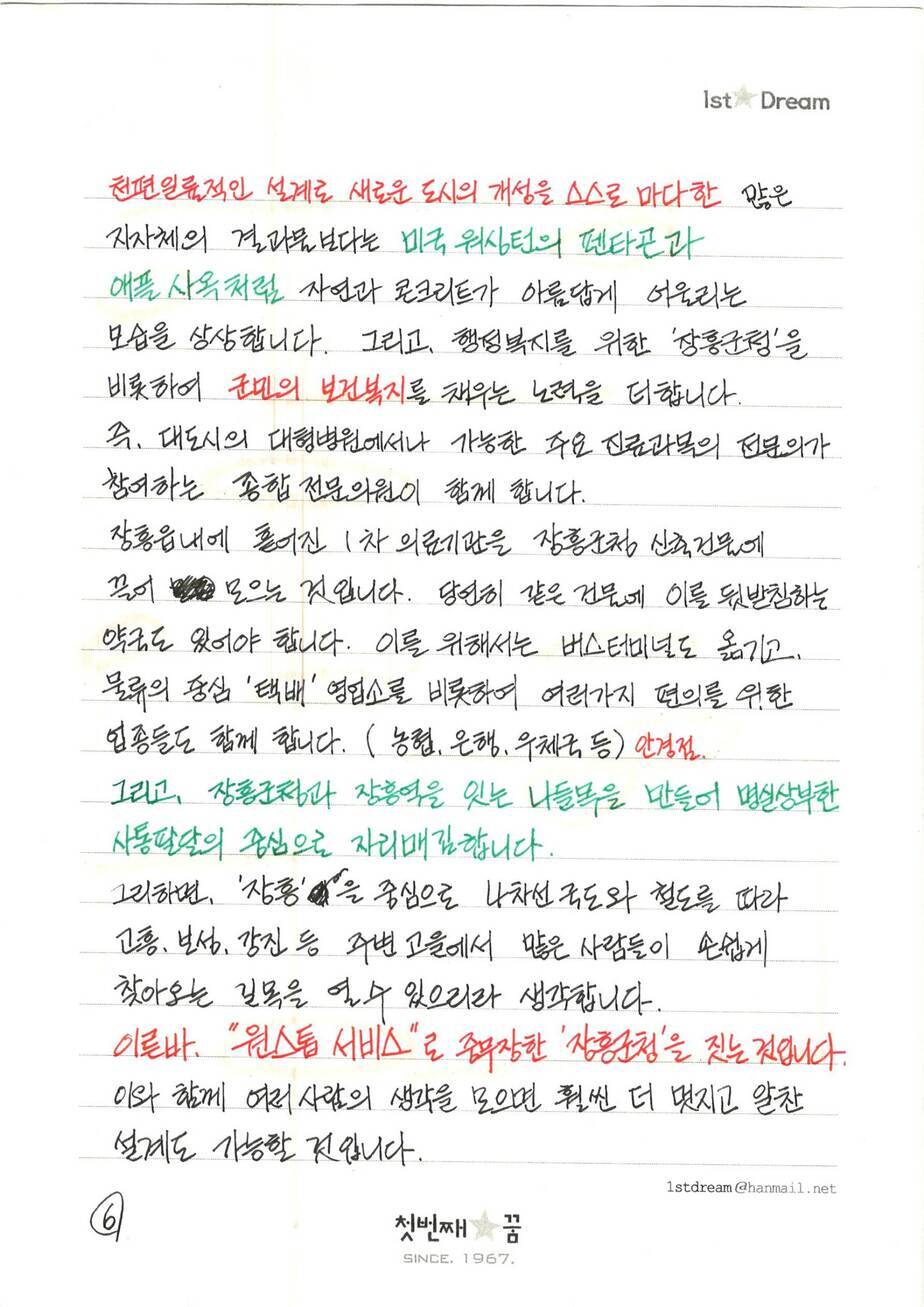 1st Dream
천편일률적인 설계로 새로운 도시의 개성을 스스로 마다한 많은
지자체의 결과물보다는 미국 워싱턴의 펜타곤과
애플 사옥처럼 자연과 콘크리트가 아름답게 어울리는
모습을 상상합니다. 그리고, 행정복지를 위한 '장흥군청'을
비롯하여 군민의 보건복지를 채우는 노력을 더합니다.
즉, 대도시의 대형병원에서나 가능한 주요 진료과목의 전문의가
참여하는 종합 전문의원이 함께 합니다.
장흥읍내에 흩어진 1차 의료기관을 장흥군청 신축건물에
끌어 모으는 것입니다. 당연히 같은 건물에 이를 뒷받침하는
약국도 있어야 합니다. 이를 위해서는 버스터미널도 옮기고,
물류의 중심 '택배' 영업소를 비롯하여 여러가지 편의를 위한
업종들도 함께 합니다. (농협, 은행, 우체국 등) 안경점.
그리고, 장흥군청과 장흥역을 잇는 나들목을 만들어 명실상부한
사통팔달의 중심으로 자리매김합니다.
그리하면, '장흥'을 중심으로 4차선 국도와 철도를 따라
고흥, 보성, 강진 등 주변 고을에서 많은 사람들이 손쉽게
찾아오는 길목을 열 수 있으리라 생각합니다.
이른바, "원스톱 서비스"로 중무장한 '장흥군청'을 짓는 것입니다.
이와 함께 여러 사람의 생각을 모으면 훨씬 더 멋지고 알찬
설계도 가능할 것입니다.
1stdream@hanmail.net
6
첫번째 꿈
SINCE. 1967.